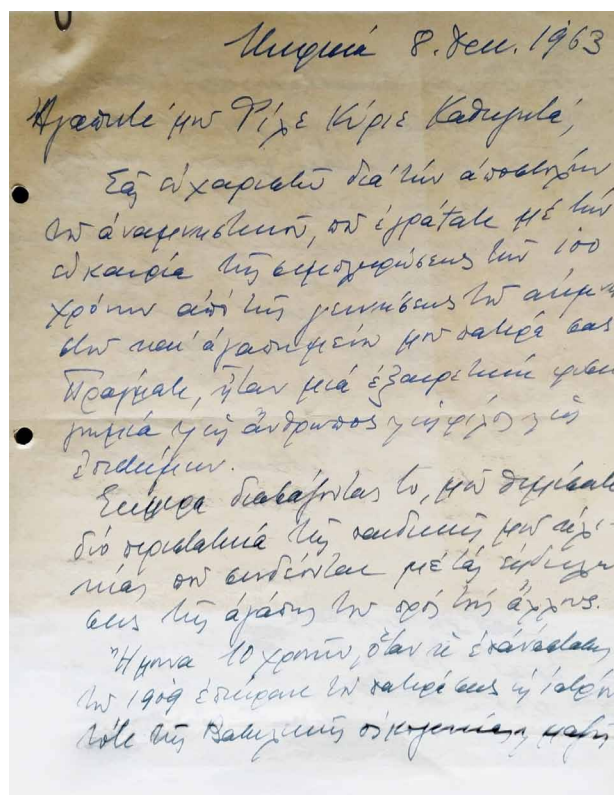 Κηφισιά 8. Δεκ. 1963
Ἀγαπητέ μου Φίλε Κύριε Καθηγητά,
Σᾶς εὐχαριστῶ διά τήν ἀποστολήν
τοῦ ἀναμνηστικοῦ, πού ἐγράψατε μέ τήν
εὐκαιρία τῆς συμπληρώσεως τῶν 100
χρόνων ἀπό τῆς γεννήσεως τοῦ ἀειμνή
στου καί ἀγαπημένου μου πατέρα σας
Πράγματι, ἦταν μιά ἐξαιρετική φυσιο
γνωμία ὡς ἄνθρωπος ὡς φίλος ὡς
ἐπιστήμων.
Σήμερα διαβάζοντας το, μοῦ θυμίσατε
δύο περιστατικά τῆς παιδικῆς μου ἡλι
κίας πού συνδέονται μέ τάς ἐκδηλώ
σεις τῆς ἀγάπης του πρός τούς ἄλλους.
Ἤμουνα 10 χρονῶν, ὅταν ἡ ἐπανάστασις
τοῦ 1909 τόν πατέρα σας ἰατρόν
τότε τῆς Βασιλικῆς οἰκογενείας